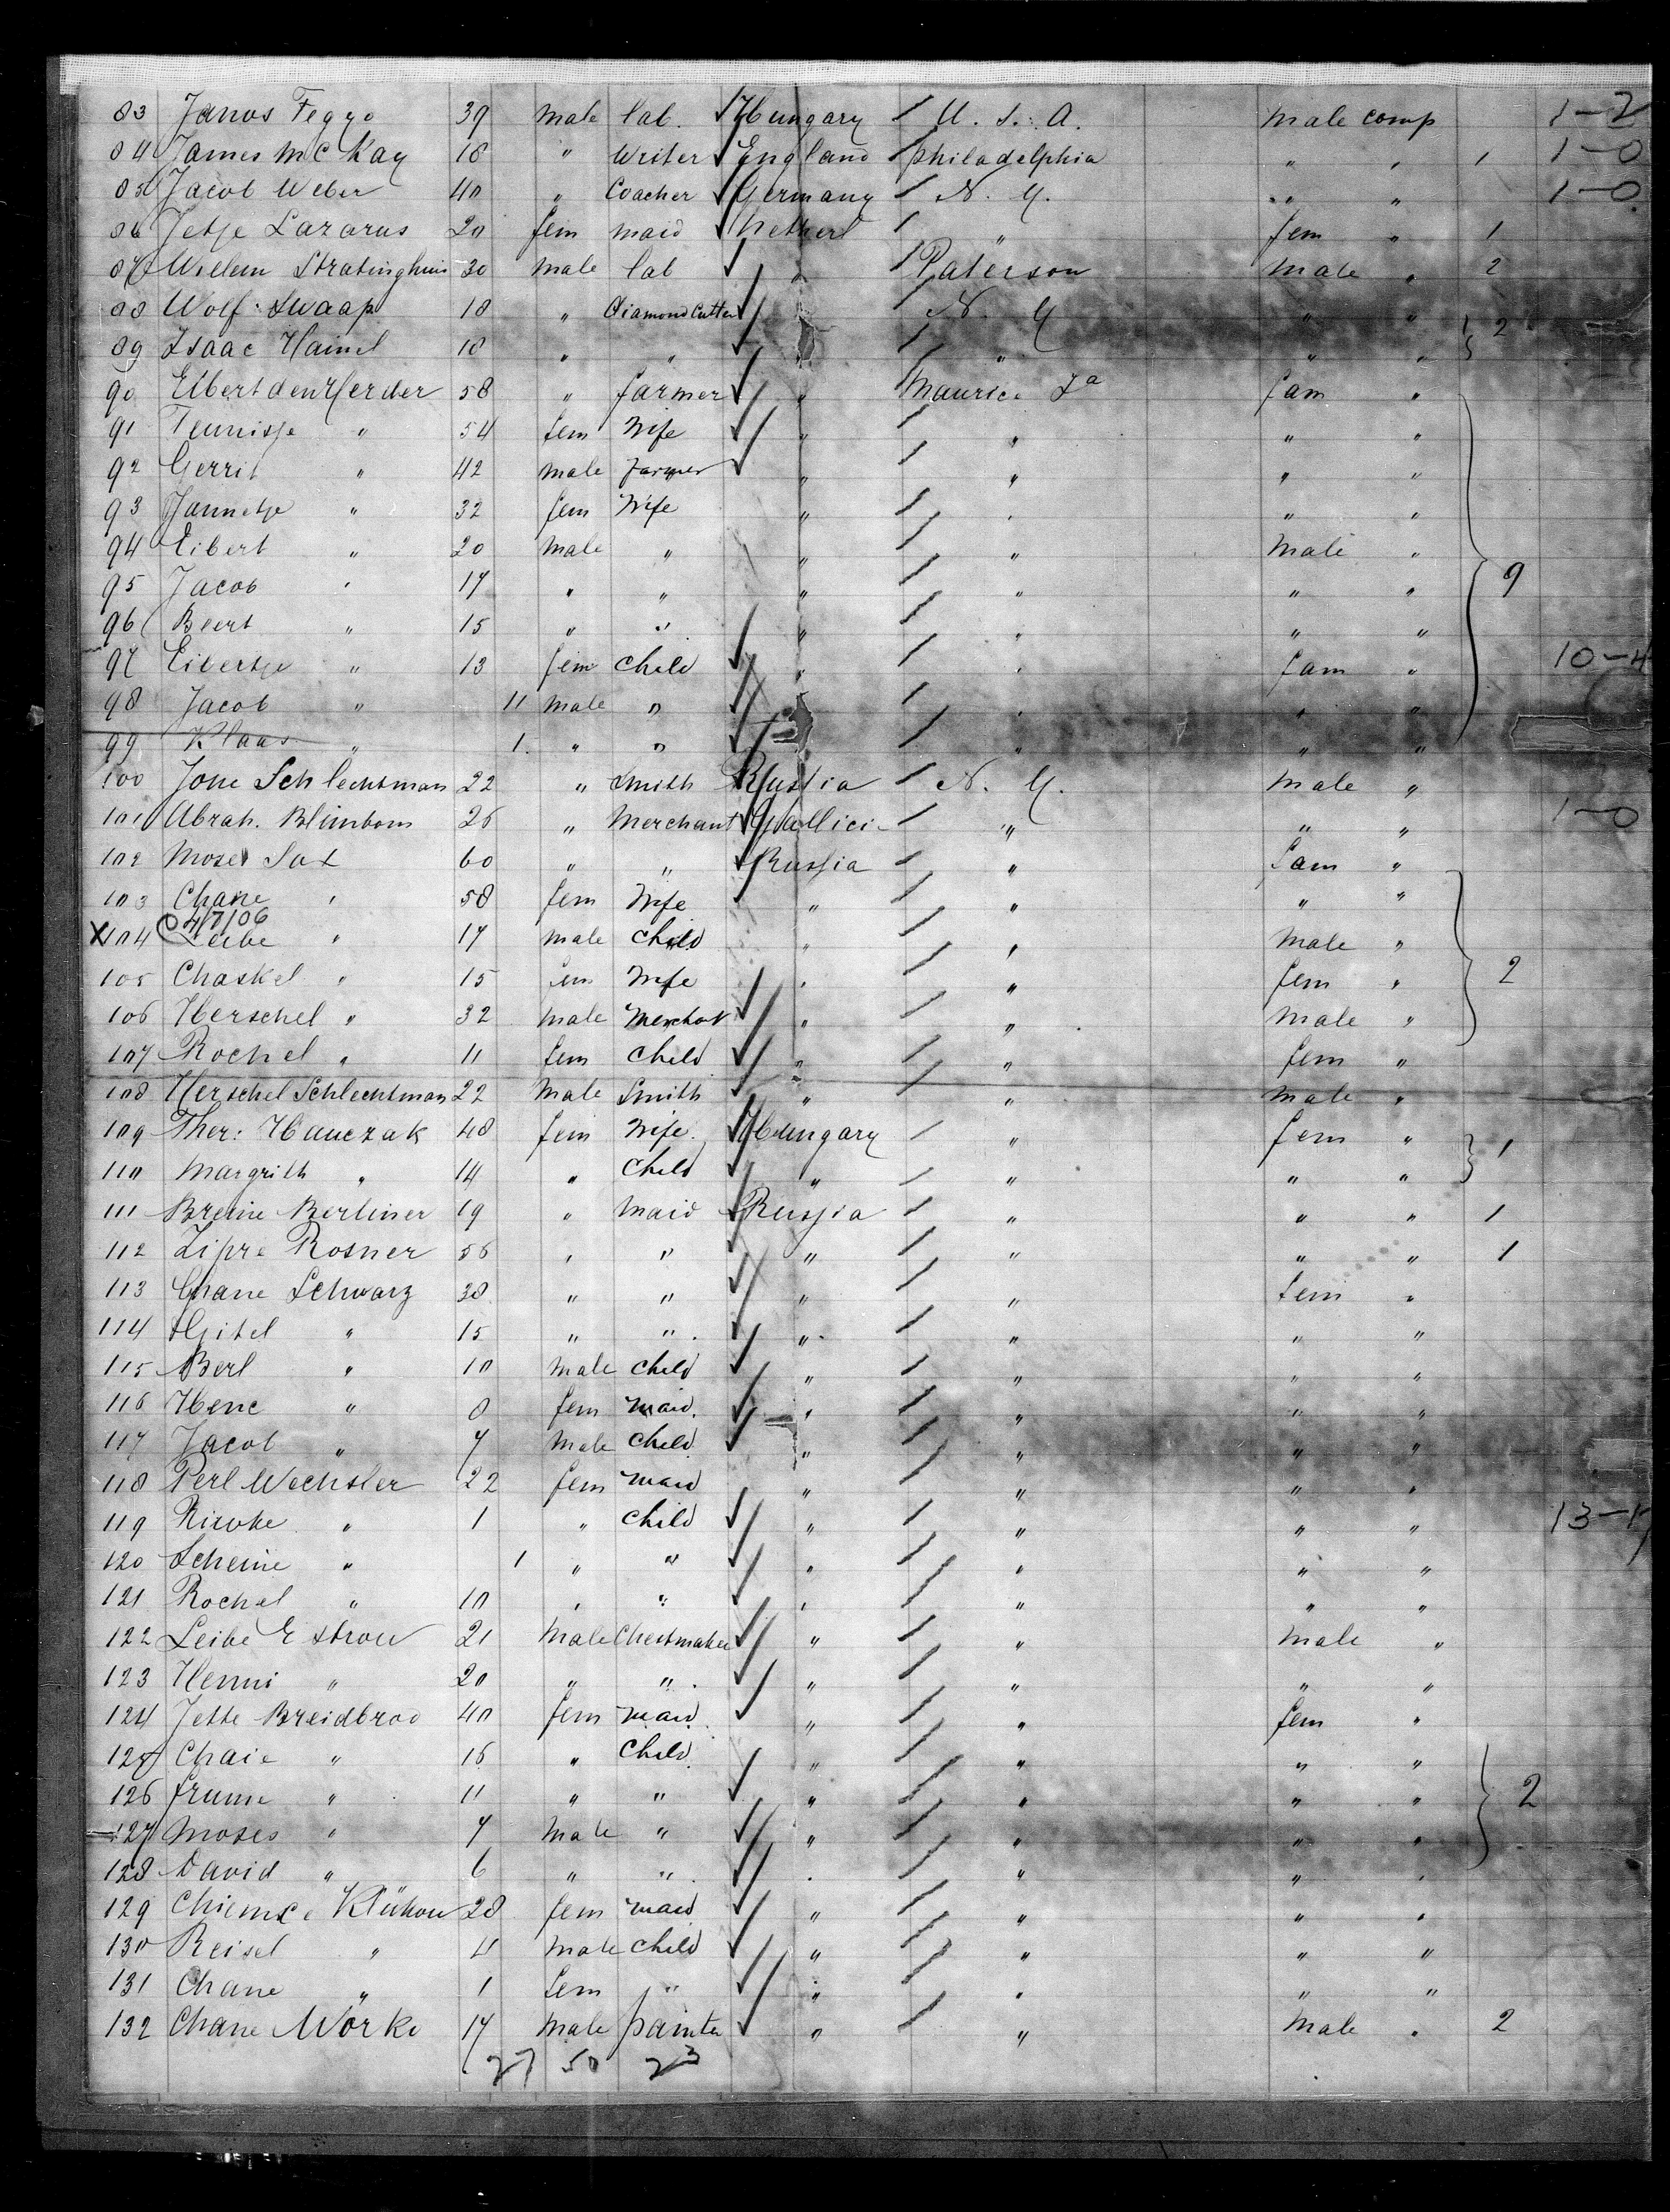 83 Janos Feggo 39 male lab. Hungary U. S. A. male comp 1-2
84 James Mc Kay 18 " Writer England Philadelphia " " 1 1-0
85 Jacob Weber 40 " Coacher Germany N. Y. " " 1-0
86 Jetje Lazarus 20 fem maid Netherl " fem " 1
87 Willem Stratinghuis 30 male lab " Paterson male " 2
88 Wolf Swaap 18 " Diamond Cutter " N. Y. " " 2
89 Isaac Hamel 18 " " " " " "
90 Eibert den Herder 58 " farmer " Maurice Ia fam " 9
91 Teunisje " 54 fem Wife " " " "
92 Gerrit " 42 male farmer " " " "
93 Jannetje " 32 fem Wife " " " "
94 Eibert " 20 male " " " male "
95 Jacob " 17 " " " " " "
96 Beert " 15 " " " " " "
97 Eibertje " 13 fem Child " " fam " 10-4
98 Jacob " 11 male " " " " "
99 Klaas " 1. " " " " "
100 Jone Schlechtman 22 " Smith Russia N. Y. male "
101 Abrah. Blimbom 26 " Merchant Gallici " " " 1-0
102 Moses Sax 60 " " Russia " fam "
103 Chane " 58 fem Wife " " " "
4/7/06
X 104 Leibe " 17 male Child " " male " 2
105 Chaskel " 15 fem Wife " " fem "
106 Herschel " 32 male Merchat " " male "
107 Rochel " 11 fem Child " " fem "
108 Herschel Schlechtman 22 male Smith " " male "
109 Ther: Hanczak 48 fem Wife. Hungary " fem " 1
110 Margrith " 14 " Child " " " "
111 Breine Berliner 19 " Maid Russia " " " 1
112 Zipre Rosner 56 " " " " " " 1
113 Chane Schwarz 38 " " " " fem "
114 Gitel " 15 " " " " " "
115 Berl " 10 male Child " " " "
116 Hene " 8 fem maid. " " " "
117 Jacob " 7 male Child " " " "
118 Perl Wechsler 22 fem maid " " " "
119 Riwke " 1 " Child " " " " 13-17
120 Scheine " 1 " " " " " "
121 Rochel " 10 " " " " " "
122 Leibe Estrow 21 male Chestmaker " " male "
123 Henni " 20 " " " " " "
124 Jette Breidbrod 40 fem maid " " fem "
125 Chaie " 16 " Child " " " "
126 Frume " 11 " " " " " " 2
127 Moses " 7 male " " " " "
128 David " 6 " " " " " "
129 Chiemse 28 fem maid " " " "
130 Reisel " 4 male Child " " " "
131 Chane " 1 fem " " " " "
132 Chane Worke 17 male painter " " male " 2
27 50 23